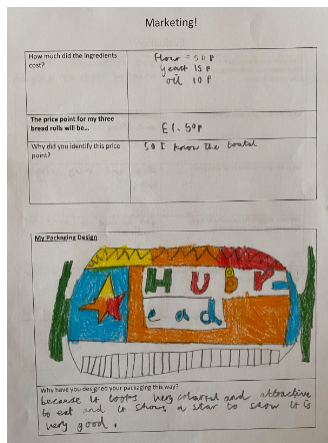 Marketing!
How much did the ingredients
cost?
Flour = 50p
yeast 15p
oil 10p
The price point for my three
bread rolls will be...
£1.50p
Why did you identify this price
point?
so I know the
My Packaging Design
HUB
ead
Why have you designed your packaging this way?
because it looks very colorful and attractive
to eat and it shows a star to show it is
very good.